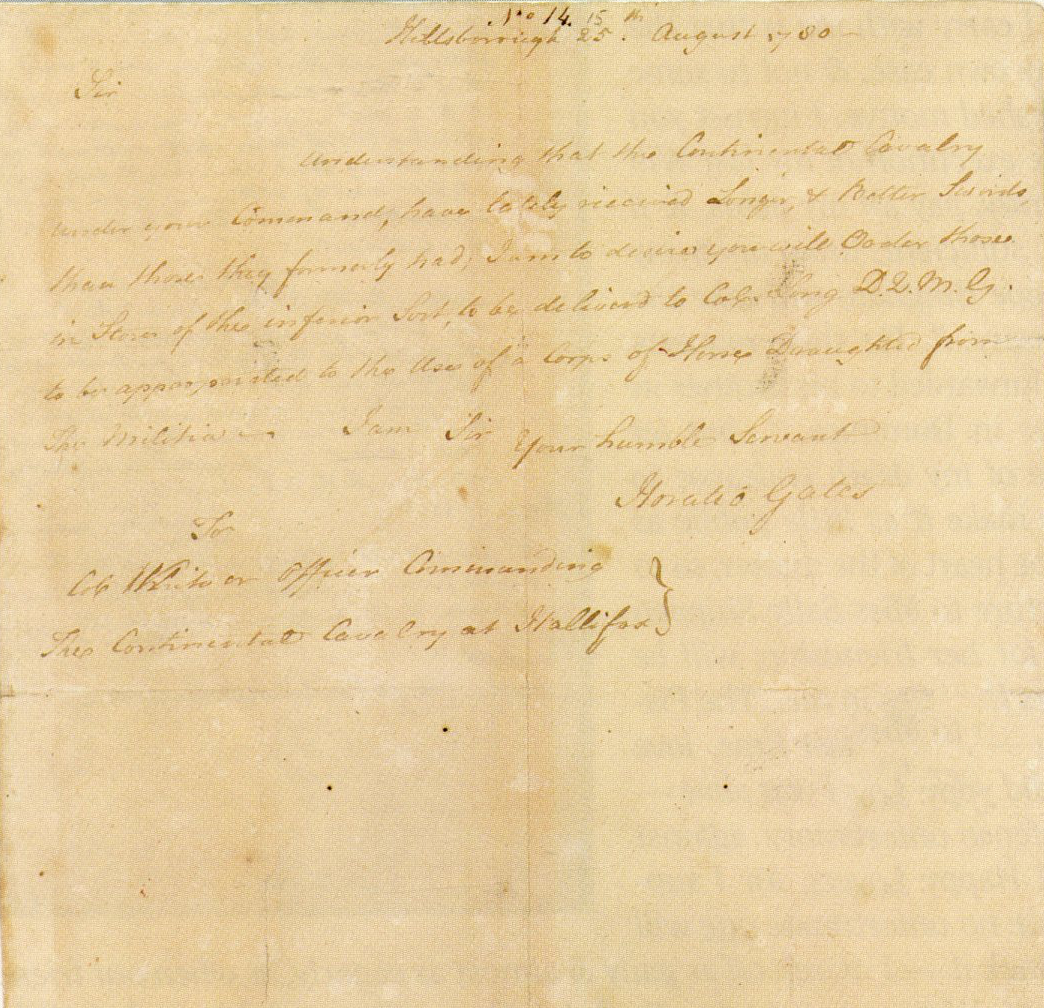 No 14. 15th
Hillsborough 25. August 1780
Sir
Understanding that the Continental Cavalry
under your Command, have lately received Longer, & Better Swords,
than those they formerly had; I am to desire you will Order those
in Store of the inferior Sort, to be delivered to Colo. Long D.Q.M.G.
to be appropriated to the Use of a Corps of Horse Draughted from
The Militia — I am Sir Your humble Servant
Horatio Gates
To
Col White or Officer Commanding
The Continental Cavalry at Hallifax }